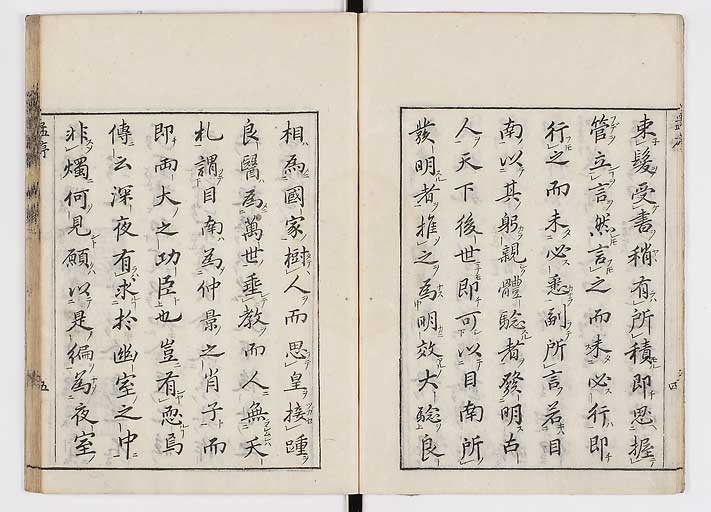 束髮受書稍有所積即思握
管立言然言之而未必行即
行之而未必悉副所言若目
南以其躬親體驗者發明古
人天下後世即可以目南所
發明者推之為明效大驗良
相為國家樹人而思皇接踵
良醫為萬世垂教而人無夭
札謂目南為仲景之肖子而
即兩大之功臣也豈有恧焉
傳云深夜有求於幽室之中
非燭何見願以是編為夜室